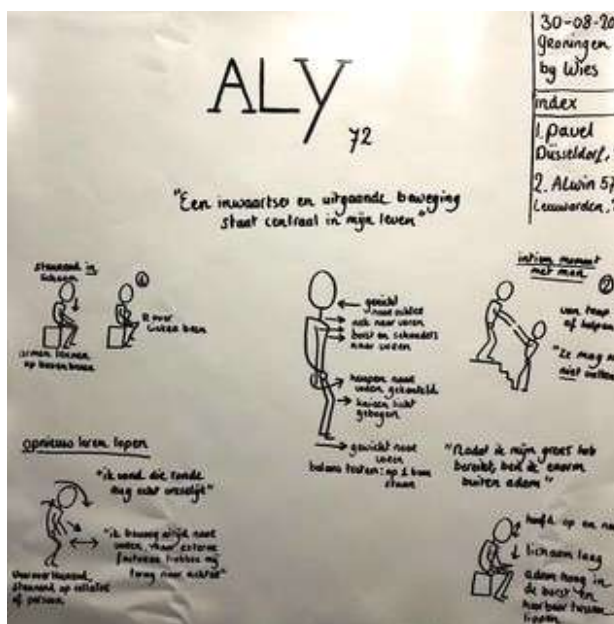 ALY
72
30-08-20
Groningen
by Wies
index
1. Pavel
Düsseldorf,
2. Alwin 57
Leeuwarden,
"Een inwaartse en uitgaande beweging
staat centraal in mijn leven"
steunend in
lichaam
1
R over
linker been
armen leunen
op bovenbenen
gewicht
naar achter
nek naar voren
borst en schouders
naar voren
heupen naar
voren gekanteld
knieën licht
gebogen
gewicht naar
voren
balans testen: op 1 been
staan
intiem moment
met man
2
van trap
of helpen
"Ze mag n
niet vallen
opnieuw leren lopen
"ik vond die ronde
rug echt vreselijk"
"ik beweeg altijd naar
voren, maar externe
factoren trekken mij
terug naar achter"
steunend op rollator
of persoon
"Nadat ik mijn grens heb
bereikt, ben ik enorm
buiten adem"
hoofd op en ne
lichaam laag
adem hoog in
de borst en
hoorbaar tussen
lippen